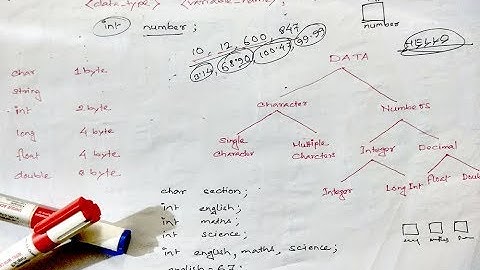 <data_type> <variable_name>;
int number;
number
10, 12, 600, 847
2.14, 68.90, 100.47, 99.99
HELLO
DATA
Character
Numbers
Single Character
Multiple Charactors
Integer
Decimal
Integer
Long Int
Float
Doub
char 1 byte
string
int 2 byte
long 4 byte
float 4 byte
double 8 byte
char section;
int english;
int maths;
int science;
int english, maths, science;
english = 67;